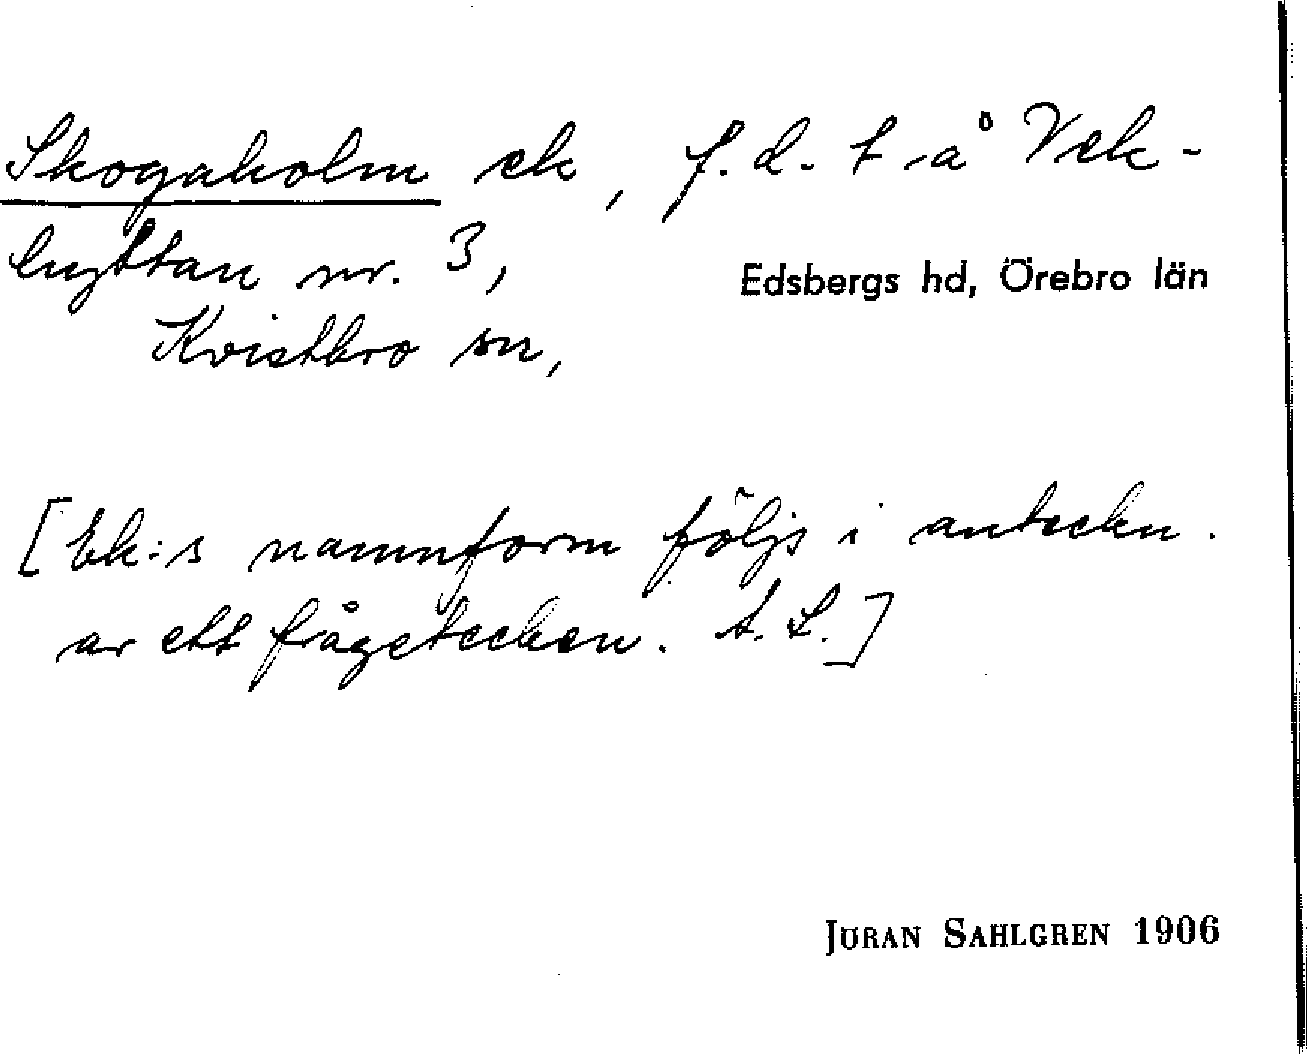 Skogaholm ek, f.d. t. å Vek-
hyttan nr. 3,
Edsbergs hd, Örebro län
Kvistbro sn,
[Ek:s namnform följs i anteckn.
av ett frågetecken. A. L.]
JÖRAN SAHLGREN 1906